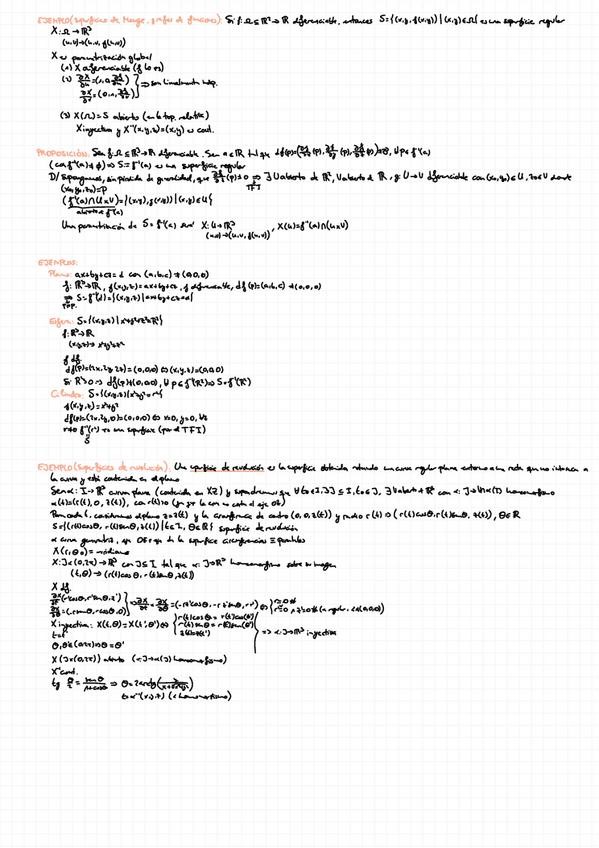 EJEMPLO (superficies de Monge, grafos de funciones): Si f: Ω ⊆ R² → R diferenciable, entonces S={(x,y,f(x,y)) | (x,y)∈Ω} es una superficie regular
X: Ω → R³
(u,v)→(u,v,f(u,v))
X es parametrización global
(1) X diferenciable (f lo es)
(2) ∂X/∂u=(1,0,∂f/∂u) ⇒ son linealmente indep.
∂X/∂v=(0,1,∂f/∂v)
(3) X(Ω)=S abierto (en la top. relativa)
X inyectiva y X⁻¹(x,y,z)=(x,y) es cont.
PROPOSICIÓN: Sea f: Ω ⊆ R³ → R diferenciable. Sea a∈R tal que df(p)=(∂f/∂x(p), ∂f/∂y(p), ∂f/∂z(p))≠0, ∀p∈f⁻¹(a)
(con f⁻¹(a)≠∅) ⇒ S=f⁻¹(a) es una superficie regular
D/ Supongamos, sin pérdida de generalidad, que ∂f/∂z(p)≠0 ⇒ ∃ U abierto de R², V abierto de R, g: U→V diferenciable con (x₀,y₀)∈U, z₀∈V donde
TFI
(x₀,y₀,z₀)=p
(f⁻¹(a)∩(U×V)={(x,y,g(x,y)) | (x,y)∈U}
abierto de f⁻¹(a)
Una parametrización de S=f⁻¹(a) será X: U→R³, X(U)=f⁻¹(a)∩(U×V)
(u,v)→(u,v,g(u,v))
EJEMPLOS:
Plano: ax+by+cz=d con (a,b,c)≠(0,0,0)
f: R³→R, f(x,y,z)=ax+by+cz, f diferenciable, df(p)=(a,b,c)≠(0,0,0)
⇒ S=f⁻¹(d)={(x,y,z) | ax+by+cz=d}
prop.
Esfera: S={(x,y,z) | x²+y²+z²=R²}
f: R³→R
(x,y,z)→x²+y²+z²
f dif.
df(p)=(2x,2y,2z)=(0,0,0)⇔(x,y,z)=(0,0,0)
Si R>0 ⇒ df(p)≠(0,0,0), ∀p∈f⁻¹(R²) ⇒ S=f⁻¹(R²)
Cilindro: S={(x,y,z) | x²+y²=r²}
f(x,y,z)=x²+y²
df(p)=(2x,2y,0)=(0,0,0)⇔x=0, y=0, ∀z
r≠0 f⁻¹(r²) es una superficie (por el TFI)
S
EJEMPLO (Superficies de revolución): Una superficie de revolución es la superficie obtenida rotando una curva regular plana en torno a una recta que no interseca a
la curva y está contenida en el plano
Sea α: I→R³ curva plana (contenida en XZ) y supondremos que ∀t₀∈I, ∃J⊆I, t₀∈J, ∃V abierto R³ con α: J→V∩α(I) homeomorfismo
α(t)=(r(t), 0, z(t)), con r(t)>0
Para cada t, consideramos el plano z=z(t) y la circunferencia de centro (0,0,z(t)) y radio r(t) → (r(t)cosθ, r(t)senθ, z(t)), θ∈R
S={(r(t)cosθ, r(t)senθ, z(t)) | t∈I, θ∈R} superficie de revolución
α curva generatriz, eje OZ eje de la superficie circunferencias ≡ paralelos
X(t,θ₀) = meridiano
X: J×(0,2π)→R³ con J⊆I tal que α: J→R³ homeomorfismo sobre su imagen
(t,θ)→(r(t)cosθ, r(t)senθ, z(t))
X dif.
∂X/∂t=(r'cosθ, r'senθ, z') ⇒ ∂X/∂t × ∂X/∂θ=(-rz'cosθ, -rz'senθ, rr')
∂X/∂θ=(-rsenθ, rcosθ, 0)
X inyectiva: X(t,θ)=X(t',θ')⇔ r(t)cosθ=r(t')cosθ'
r(t)senθ=r(t')senθ' ⇒ α: J→R³ inyectiva
z(t)=z(t')
t=t'
θ,θ'∈(0,2π)⇒θ=θ'
X(J×(0,2π)) abierto (α: J→α(J) homeomorfismo)
X⁻¹ cont.
tg θ/2 = senθ/(1+cosθ) ⇒ θ=2arctg(y/(x+√(x²+y²)))
(α homeomorfismo)